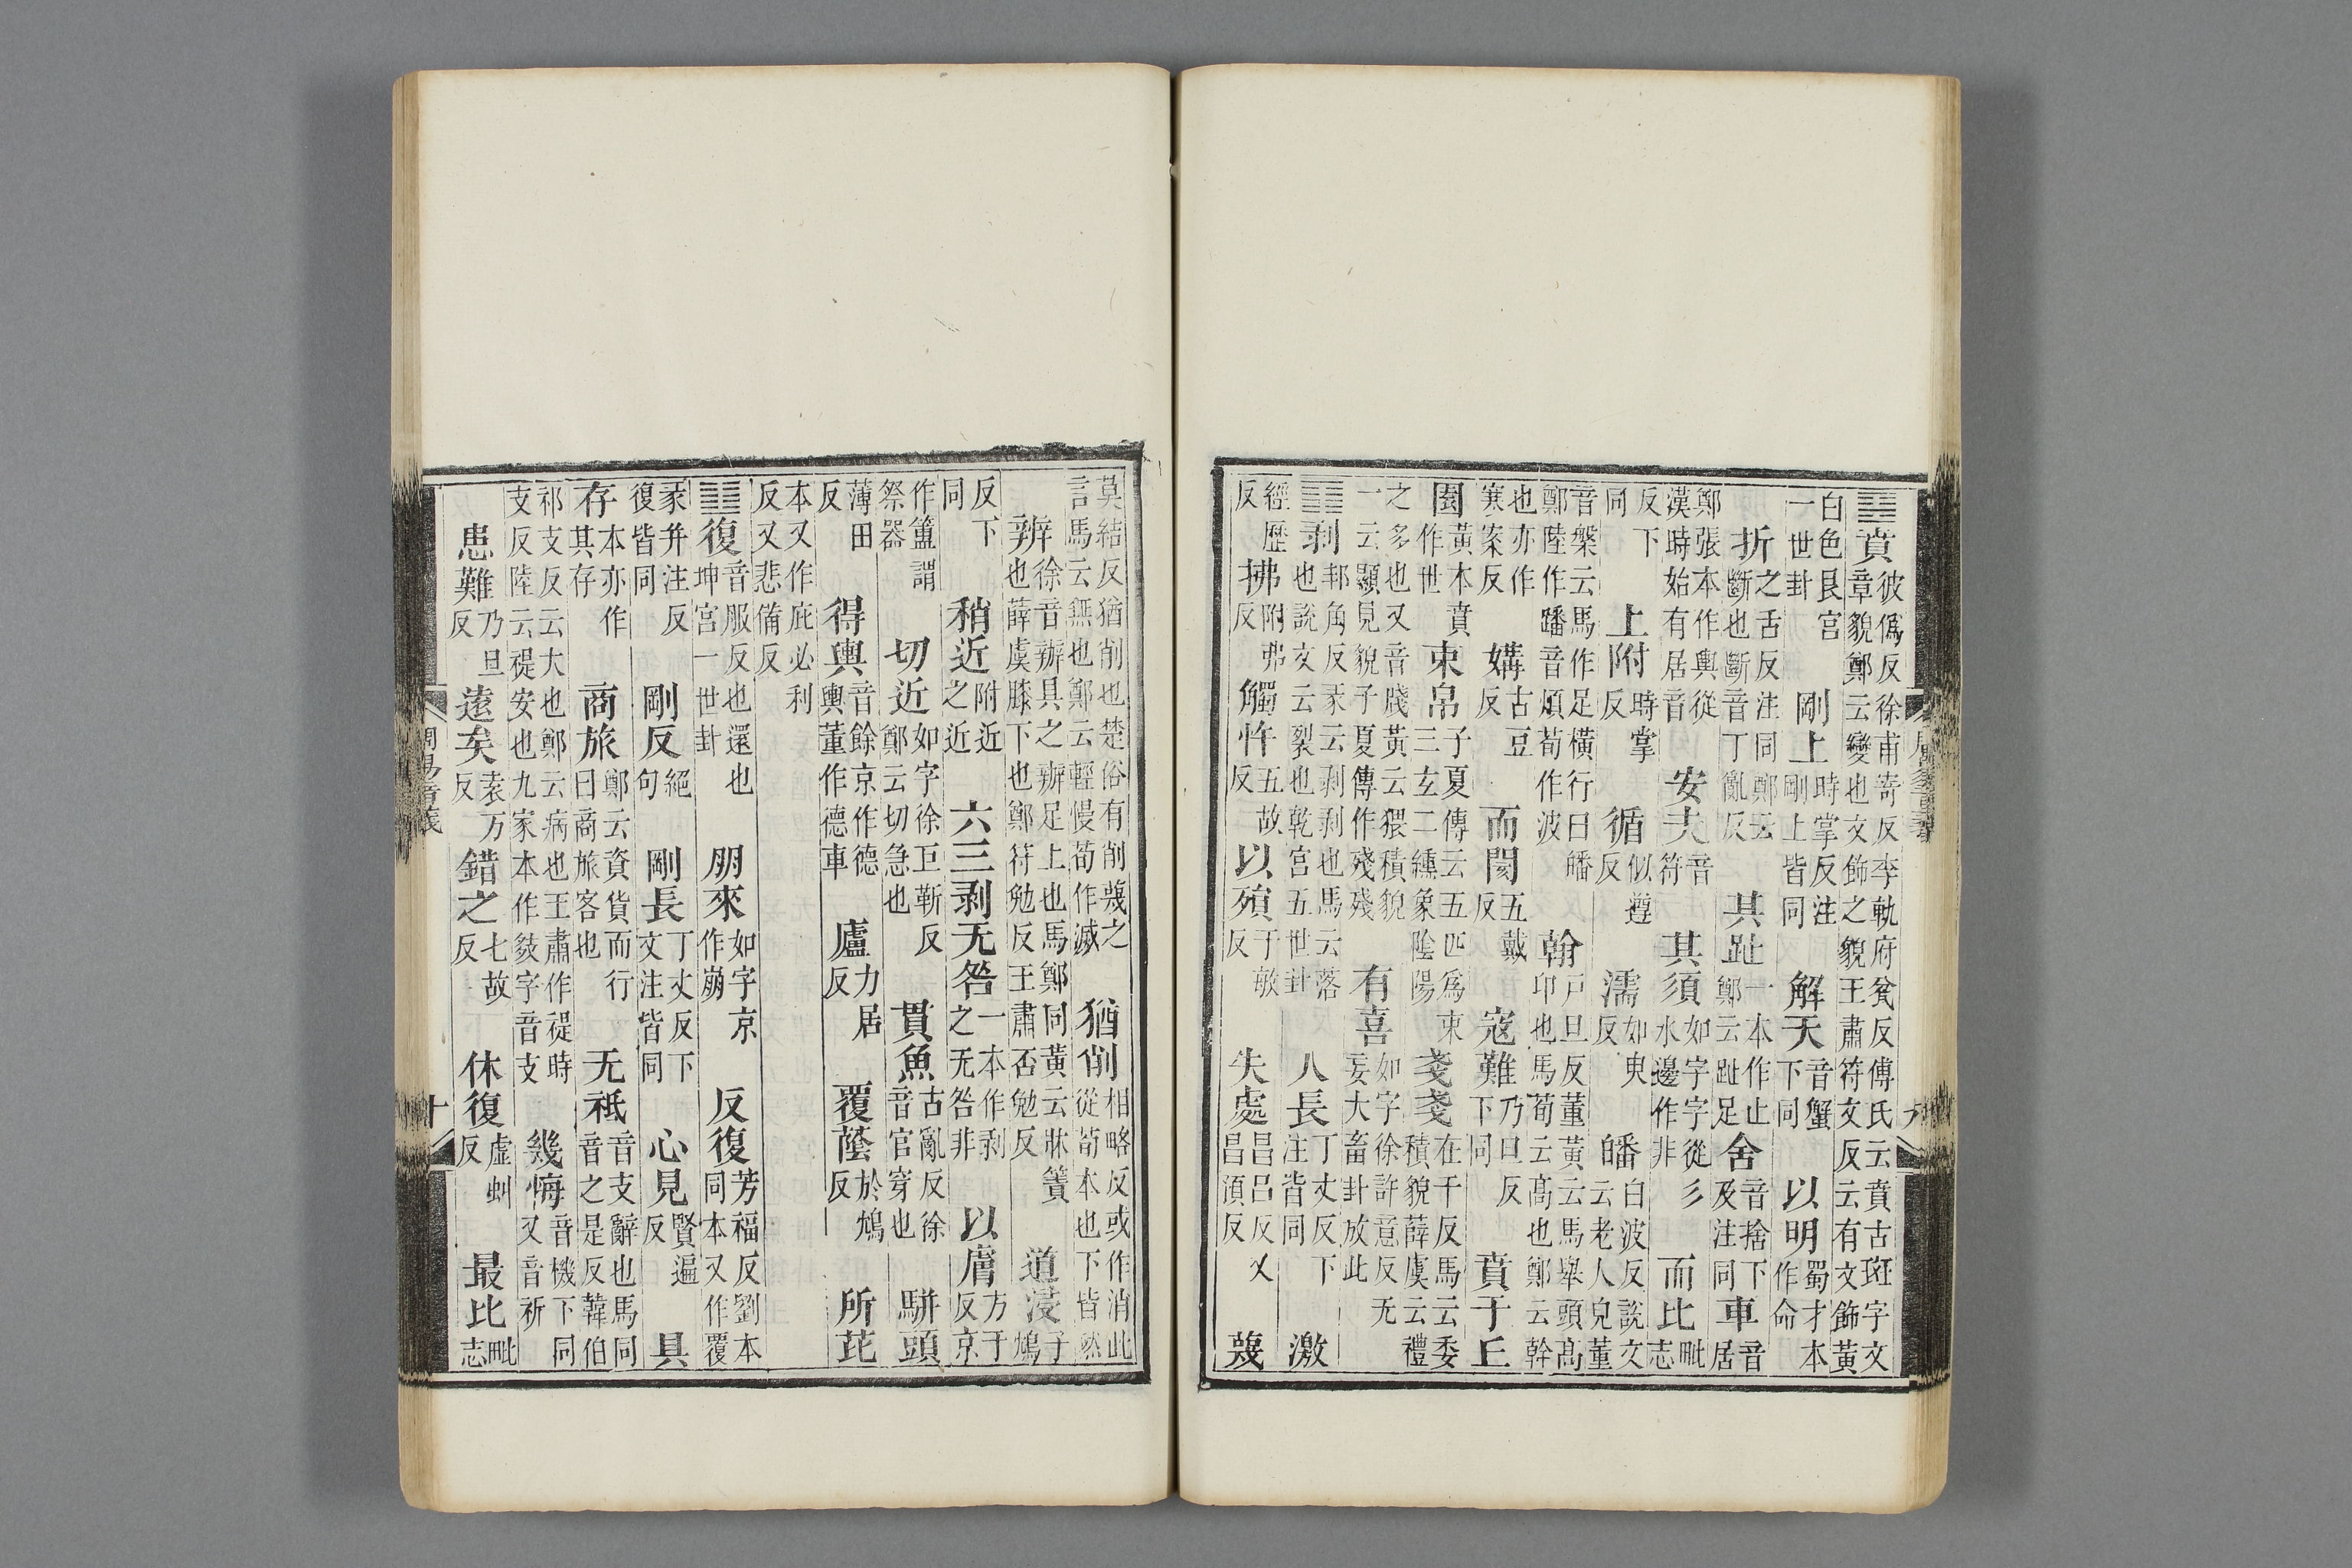 ䷕賁彼僞反徐甫寄反李軌府瓫反傅氏云賁古斑字文章貌鄭云變也文飾之貌王肅符文反云有文飾黃
白色艮宮一世卦 剛上時掌反注剛上皆同 解天音蟹下同 以明蜀才本作命
折之舌反注同鄭云斷也斷音丁亂反 其趾一本作止鄭云趾足 舍音捨下及注同 車音居
鄭張本作輿從漢時始有居音 安夫音符 其須如字字從彡水邊作非 而比毗志
反下同 上附時掌反 循似遵反 濡如臾反 皤白波反說文云老人皃董
音槃云馬作足橫行曰皤鄭陸作蹯音煩荀作波 翰戶旦反董黃云馬舉頭高卬也馬荀云高也鄭云幹
也亦作寒案反 媾古豆反 而閡五戴反 寇難乃旦反下同 賁于丘
園黃本賁作世 束帛子夏傳云五匹爲束三玄二纁象陰陽 戔戔在千反馬云委積貌薛虞云禮
之多也又音牋黃云猥積貌一云顯見貌子夏傳作殘殘 有喜如字徐許意反无妄大畜卦放此
䷖剥邦角反彖云剥剥也馬云落也說文云裂也乾宮五世卦 人長丁丈反下注皆同 激
經歷反 拂附弗反 觸忤五故反 以殞于敏反 失處昌呂反又昌預反 蔑
莫結反猶削也楚俗有削蔑之言馬云無也鄭云輕慢荀作滅 猶削相略反或作消此從荀本也下皆然
辨徐音辦具之辦足上也馬鄭同黃云牀簀也薛虞膝下也鄭符勉反王肅否勉反 道浸子鴆
反下同 稍近附近之近 六三剥无咎一本作剥之无咎非 以膚方于反京
作簠謂祭器 切近如字徐巨靳反鄭云切急也 貫魚古亂反徐音官穿也 駢頭
薄田反 得輿音餘京作德輿董作德車 廬力居反 覆蔭於鴆反 所芘
本又作庇必利反又悲備反
䷗復音服反也還也坤宮一世卦 朋來如字京作崩 反復芳福反劉本同本又作覆
彖并注反復皆同 剛反絕句 剛長丁丈反下文注皆同 心見賢遍反 具
存本亦作其存 商旅鄭云資貨而行曰商旅客也 无祗音支辭也馬同音之是反韓伯
祁支反云大也鄭云病也王肅作禔時支反陸云禔安也九家本作㩼字音支 幾悔音機下同又音祈
患難乃旦反 遠矣袁万反 錯之七故反 休復虛虯反 最比毗志
周易音義
十